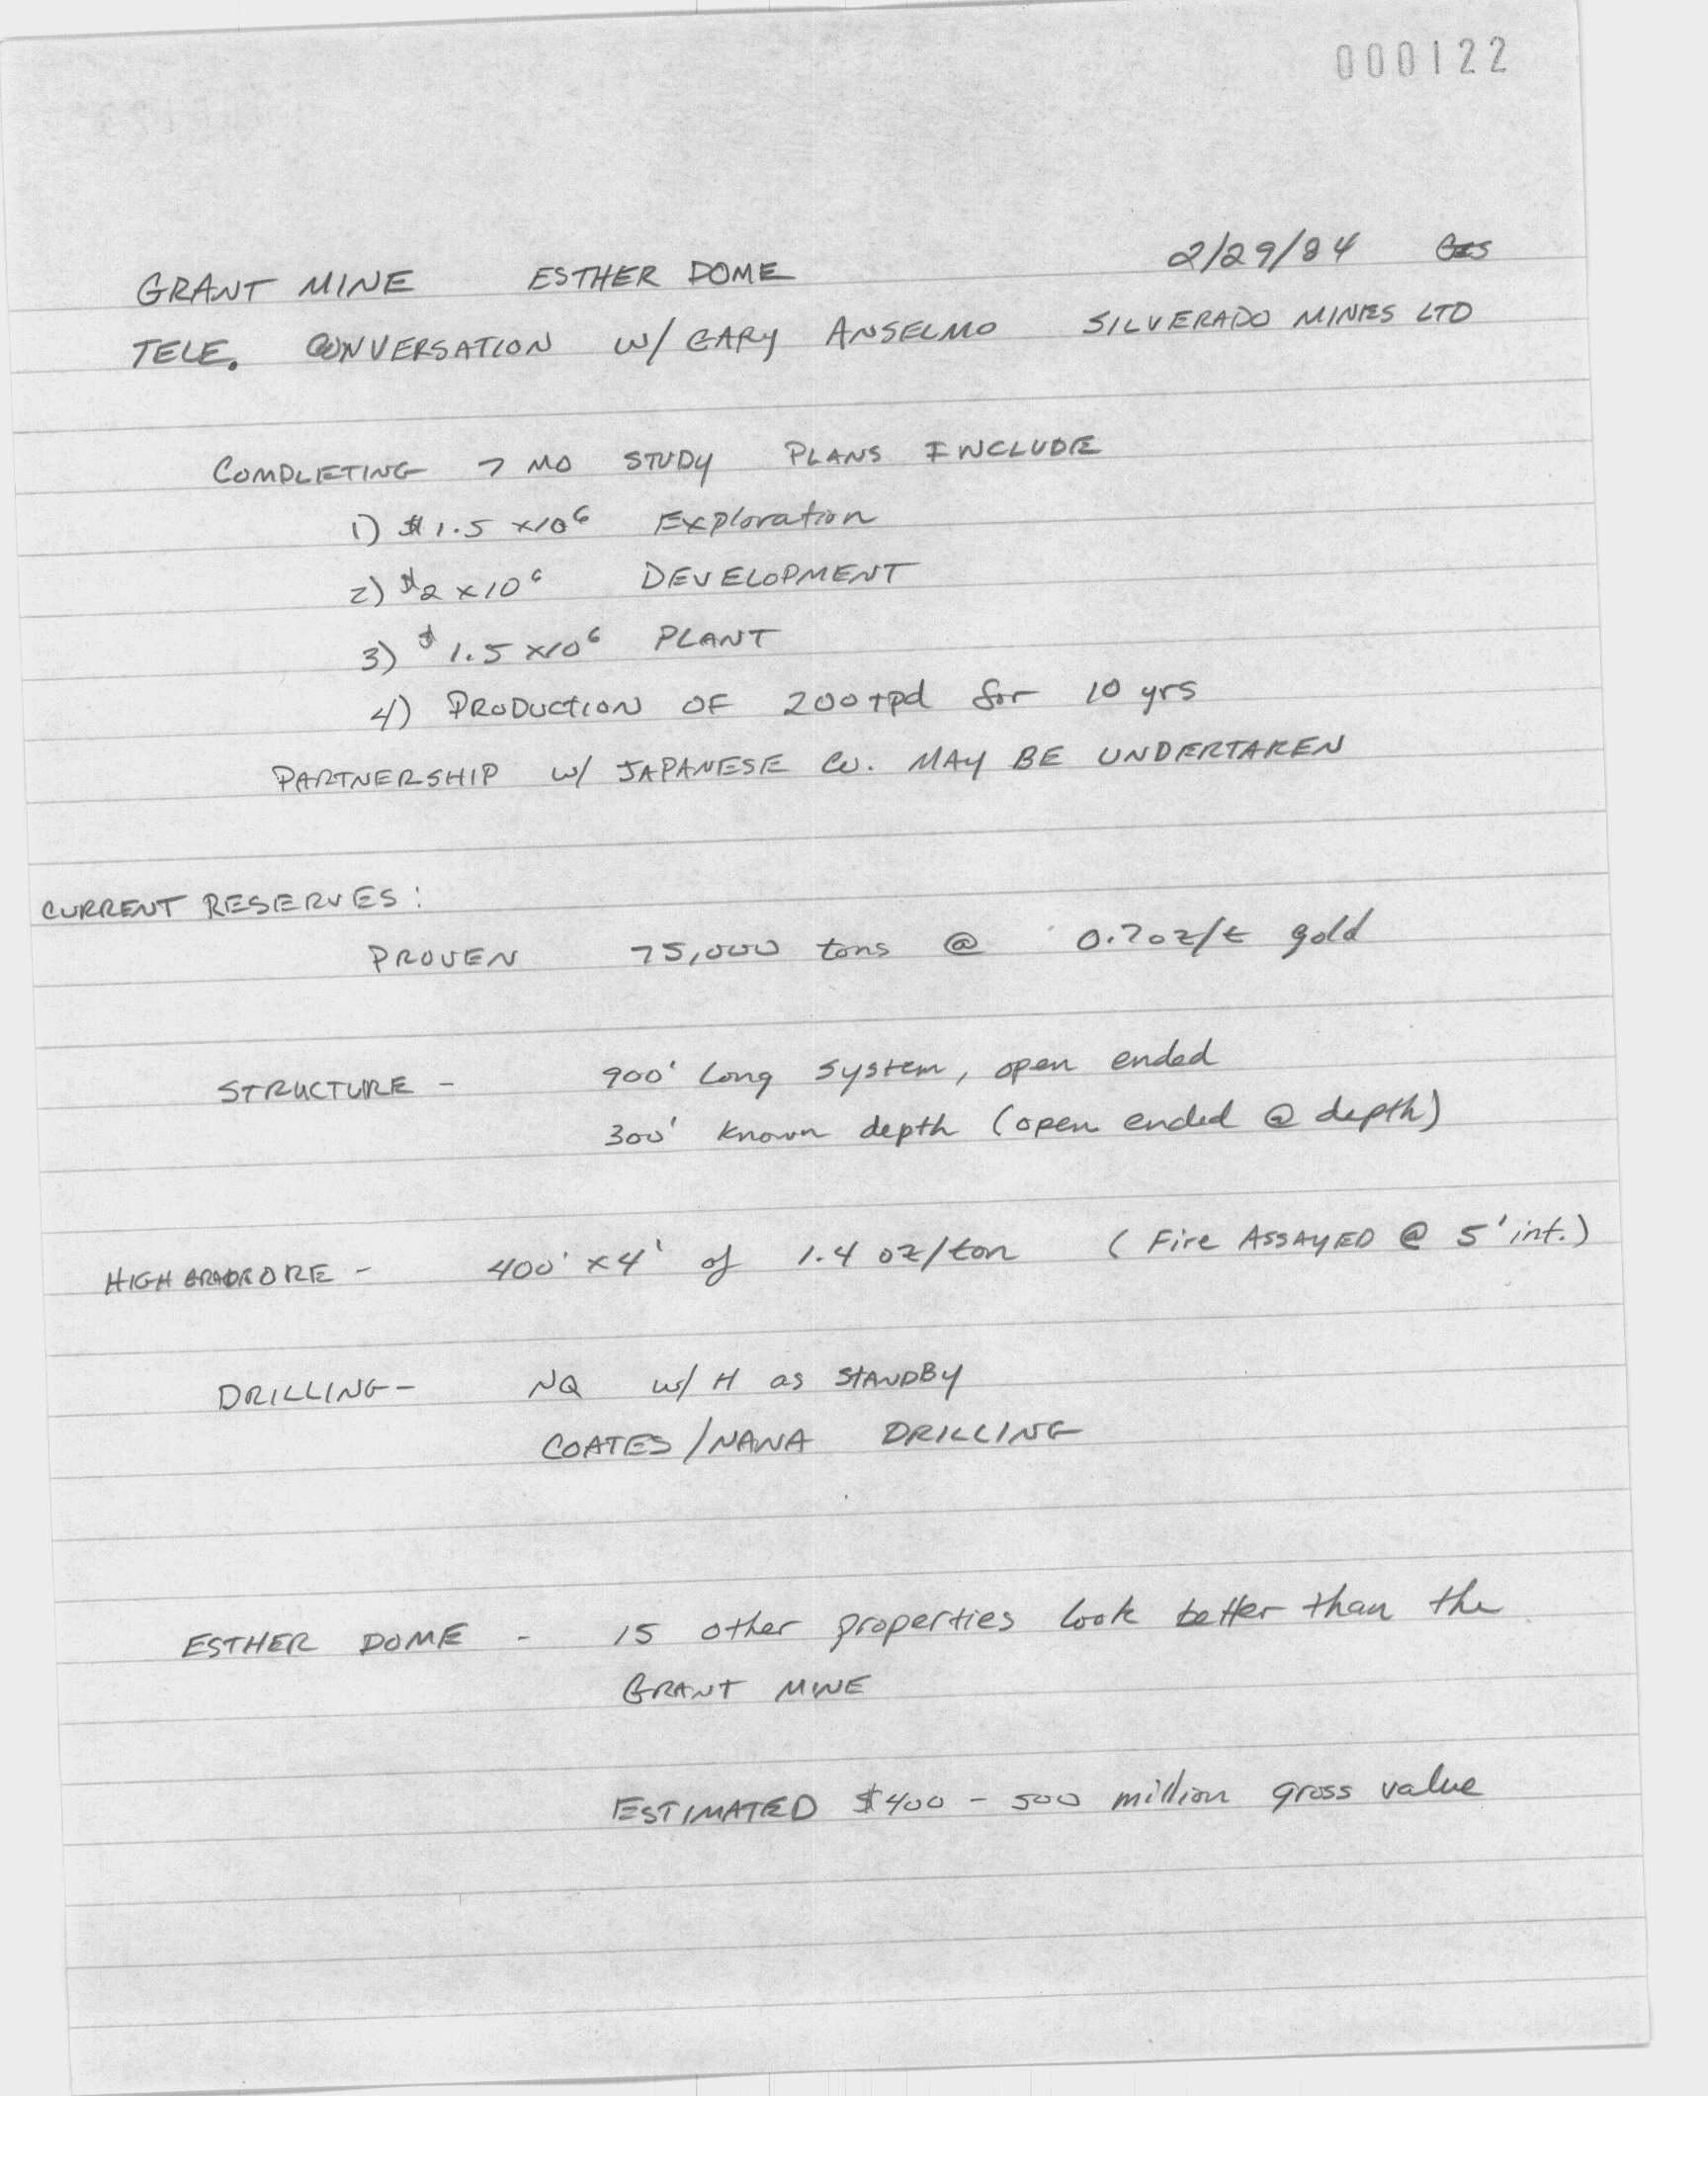 000122
GRANT MINE ESTHER DOME 2/29/84
TELE. CONVERSATION W/ GARY ANSELMO SILVERADO MINES LTD
COMPLETING 7 MO STUDY PLANS INCLUDE
1) $1.5 x10⁶ Exploration
2) $2 x10⁶ DEVELOPMENT
3) $1.5 x10⁶ PLANT
4) PRODUCTION OF 200 tpd for 10 yrs
PARTNERSHIP W/ JAPANESE Co. MAY BE UNDERTAKEN
CURRENT RESERVES:
PROVEN 75,000 tons @ 0.7oz/t gold
STRUCTURE - 900' Long System, open ended
300' known depth (open ended @ depth)
HIGH GRADE ORE - 400' x 4' of 1.4 oz/ton (Fire ASSAYED @ 5' int.)
DRILLING- NQ w/ H as STANDBY
COATES/NANA DRILLING
ESTHER DOME - 15 other properties look better than the
GRANT MINE
ESTIMATED $400 - 500 million gross value